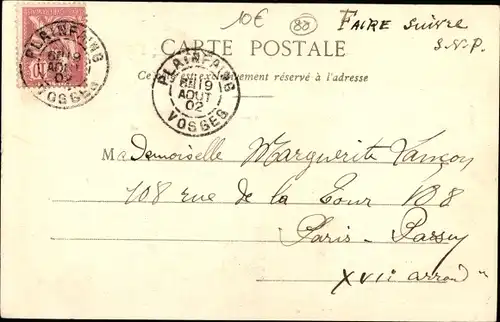 10€ 88 FAIRE suivre
S.V.P.
CARTE POSTALE
Ce côté est exclusivement réservé à l'adresse
PLAINFAING
8H 19
AOUT
02
VOSGES
PLAINFAING
8H 19
AOUT
02
VOSGES
Mademoiselle Marguerite Vançon
108 rue de la Tour 108
Paris-Passy
XVIe arrond